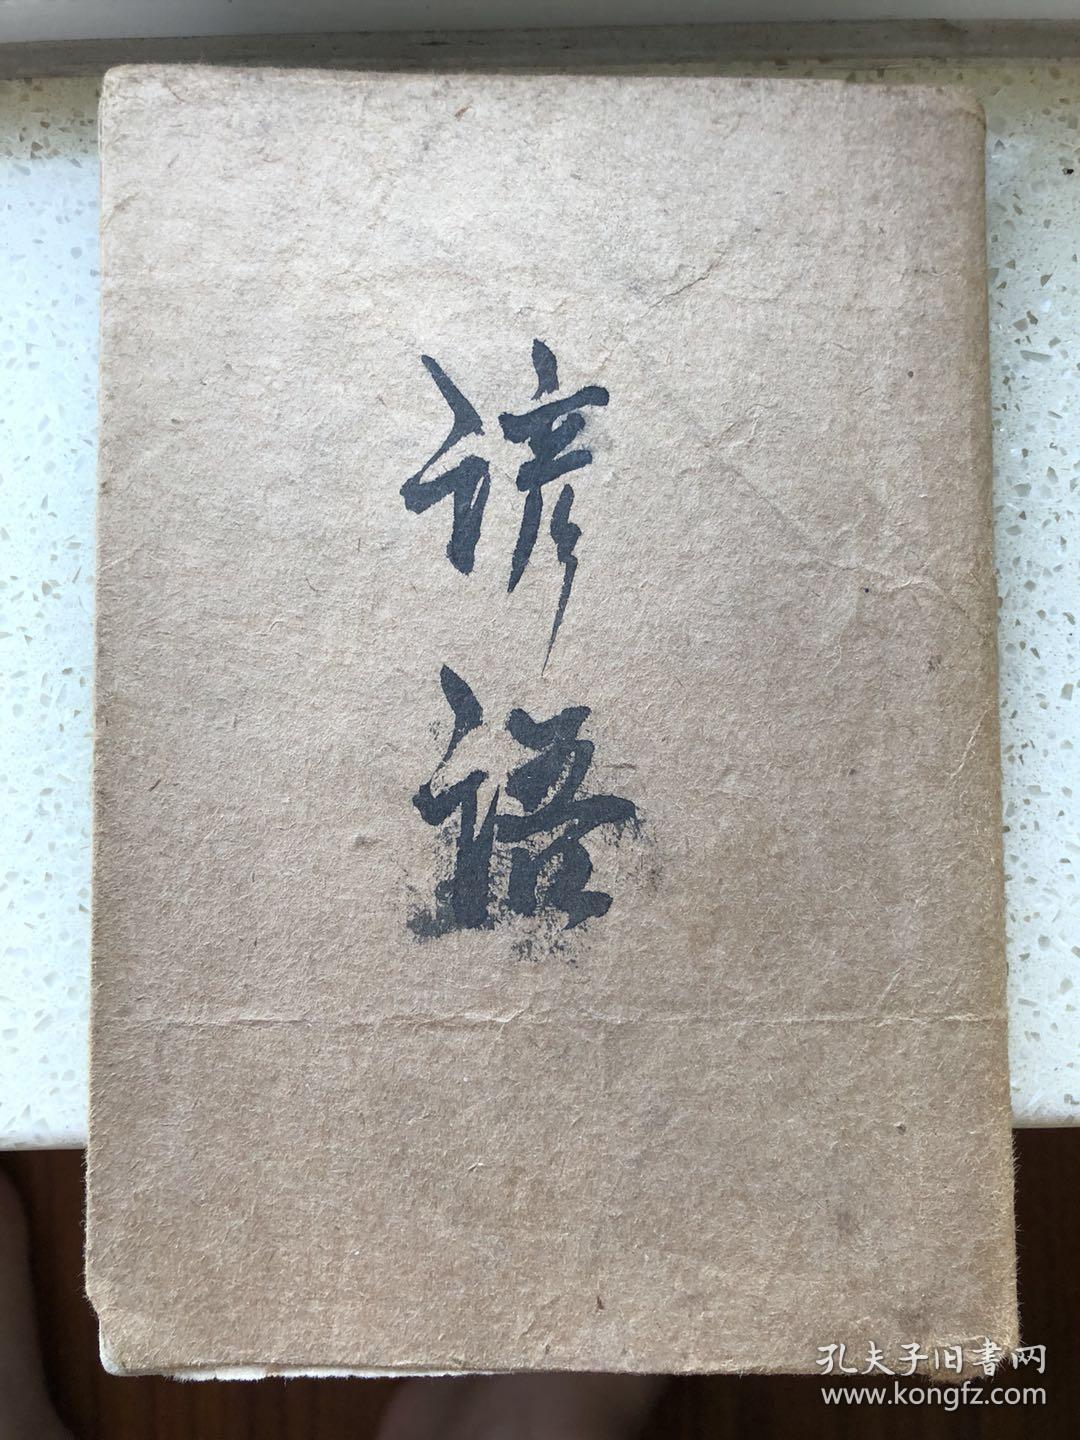 谚语
孔夫子旧書网
www.kongfz.com